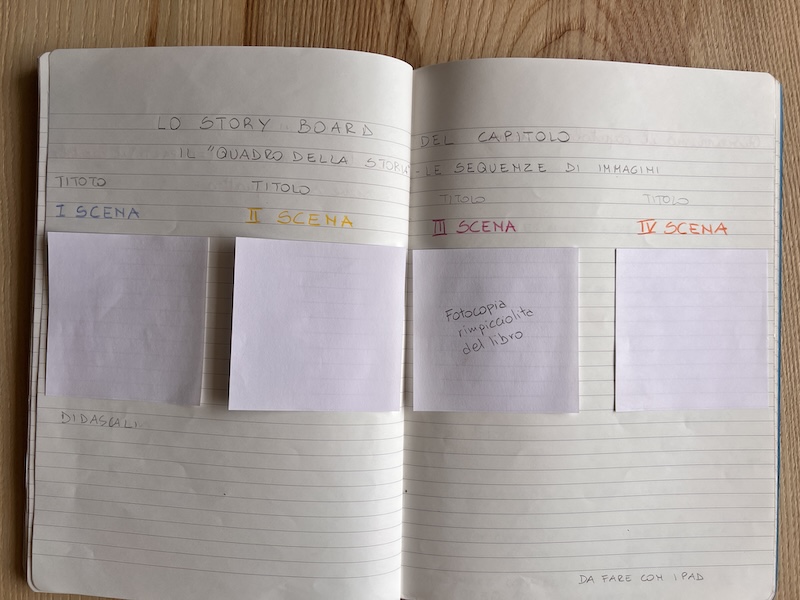 LO STORY BOARD DEL CAPITOLO
IL "QUADRO DELLA STORIA" - LE SEQUENZE DI IMMAGINI
TITOTO
TITOLO
TITOLO
TITOLO
I SCENA
II SCENA
III SCENA
IV SCENA
Fotocopia
rimpicciolita
del libro
DIDASCALI...
DA FARE COM IPAD